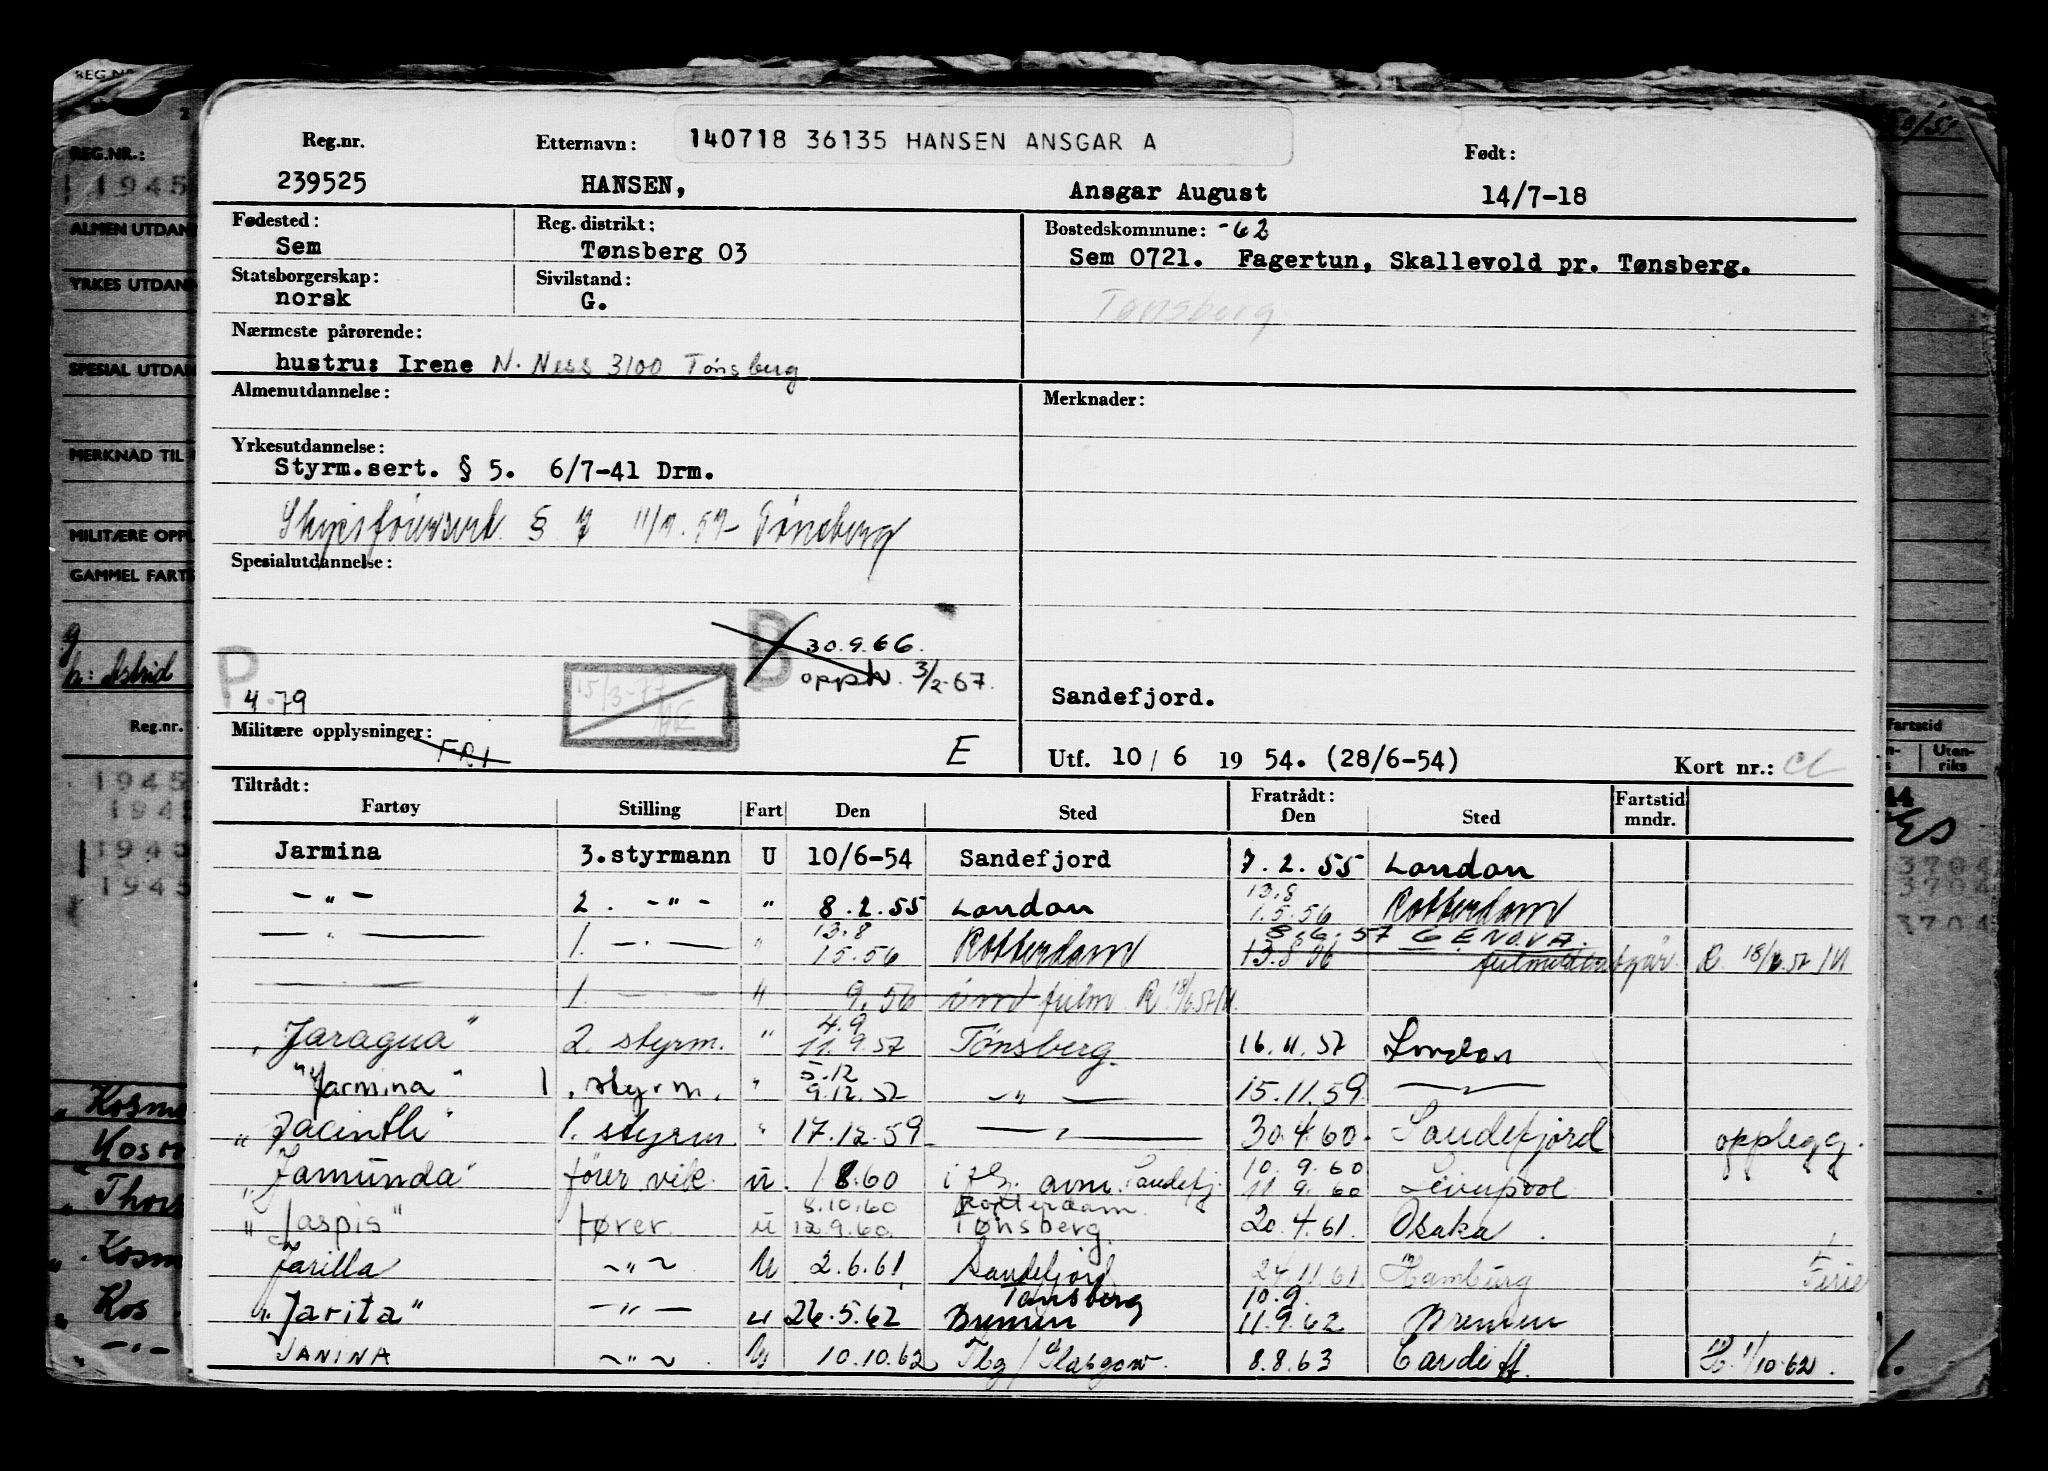 140718 36135 HANSEN ANSGAR A
Reg.nr. Etternavn: Født:
239525 HANSEN, Ansgar August 14/7-18
Fødested: Reg. distrikt: Bostedskommune: -62
Sem Tønsberg 03 Sem 0721. Fagertun, Skallevold pr. Tønsberg.
Statsborgerskap: Sivilstand:
norsk G. Tønsberg
Nærmeste pårørende:
hustru: Irene N. Ness 3100 Tønsberg
Almenutdannelse: Merknader:
Yrkesutdannelse:
Styrm.sert. § 5. 6/7-41 Drm.
Skipsførersert. § Tønsberg
Spesialutdannelse:
B 30.9.66.
P opphv. 3/2-67.
4.79 15/3-77 Sandefjord.
Militære opplysninger: FRI E Utf. 10/6 1954. (28/6-54) Kort nr.:
Tiltrådt: Fratrådt:
Fartøy Stilling Fart Den Sted Den Sted Fartstid mndr.
Jarmina 3.styrmann U 10/6-54 Sandefjord 7.2.55 London
-"- 2. -"- " 8.2.55 London 13.8 1.5.56 Rotterdam
-"- 1. -"- " 13.8 1.5.56 Rotterdam 8.6.57 GENOVA. 13.8.56
-"- 1. -"- " 9.56
"Jaragua" 2. styrm. " 4.9 11.9.57 Tønsberg. 16.11.57 London
"Jarmina" 1. styrm. " 5.12 9.12.57 -"- 15.11.59 -"-
"Jacinth" 1. styrm " 17.12.59 -"- 30.4.60 Sandefjord opplegg.
"Jamunda" fører vik. u. 1.8.60 Sandefj. 10.9.60 11.9.60 Liverpool
"Jaspis" fører u 8.10.60 12.9.60 Rotterdam Tønsberg. 20.4.61. Osaka.
Jarilla -"- U 2.6.61 Sandefjord 24.11.61 Hamburg Ferie
"Jarita" -"- u 26.5.62 Tønsberg Bremen 10.9. 11.9.62 Bremen
JANINA -"- U 10.10.62 Tbg/Glasgow. 8.8.63 Cardiff. 1/10.62.
REG.NR.:
1945
ALMEN UTDAN
YRKES UTDAN
SPESIAL UTDAN
MERKNAD TIL
MILITÆRE OPPL
GAMMEL FARTS
Astrid
Reg.nr.
1945
1945
1945
1945
Kosm
Thors
Kosm
Kos
Fartstid
Uten-
riks
3704
3704
3704